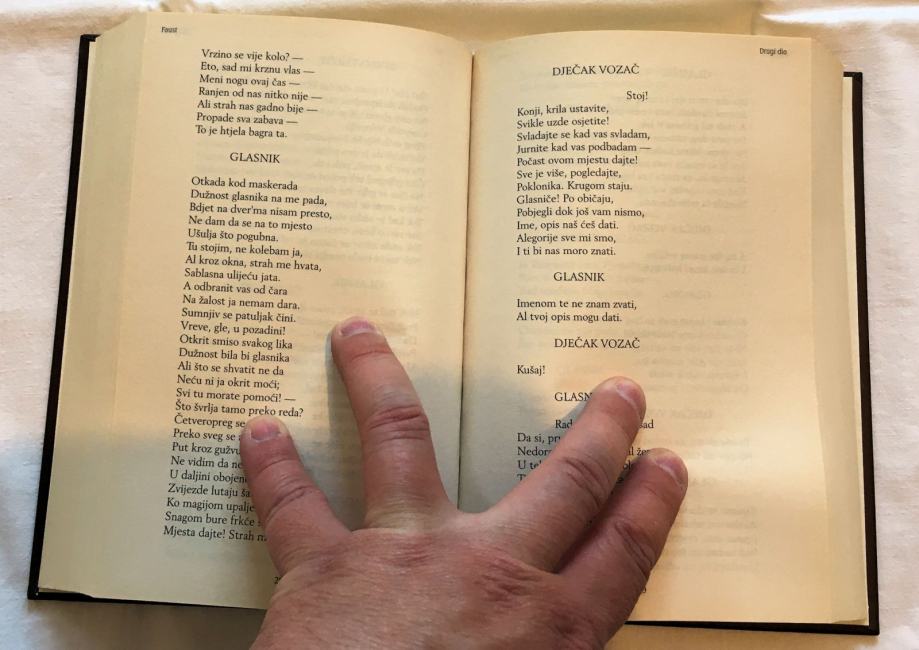 Faust
Vrzino se vije kolo? —
Eto, sad mi krznu vlas —
Meni nogu ovaj čas —
Ranjen od nas nitko nije —
Ali strah nas gadno bije —
Propade sva zabava —
To je htjela bagra ta.
GLASNIK
Otkada kod maskerada
Dužnost glasnika na me pada,
Bdjet na dver'ma nisam presto,
Ne dam da se na to mjesto
Ušulja što pogubna.
Tu stojim, ne kolebam ja,
Al kroz okna, strah me hvata,
Sablasna ulijeću jata.
A odbranit vas od čara
Na žalost ja nemam dara.
Sumnjiv se patuljak čini.
Vreve, gle, u pozadini!
Otkrit smiso svakog lika
Dužnost bila bi glasnika
Ali što se shvatit ne da
Neću ni ja okrit moći;
Svi tu morate pomoći! —
Što švrlja tamo preko reda?
Četveropreg se
Preko sveg se
Put kroz gužvu
Ne vidim da
U daljini
Zvijezde lutaju
Ko magijom
Snagom bure frkće
Mjesta dajte! Strah
Drugi dio
DJEČAK VOZAČ
Stoj!
Konji, krila ustavite,
Svikle uzde osjetite!
Svladajte se kad vas svladam,
Jurnite kad vas podbadam —
Počast ovom mjestu dajte!
Sve je više, pogledajte,
Poklonika. Krugom staju.
Glasniče! Po običaju,
Pobjegli dok još vam nismo,
Ime, opis naš ćeš dati.
Alegorije sve mi smo,
I ti bi nas moro znati.
GLASNIK
Imenom te ne znam zvati,
Al tvoj opis mogu dati.
DJEČAK VOZAČ
Kušaj!
Da si,
U